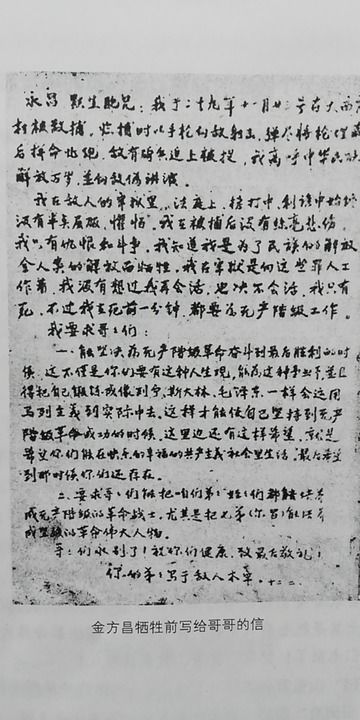 永昌 默生胞兄：我于二十九年十一月廿三号在大西
村被敌捕。在捕时以手枪向敌射击，弹尽将枪埋藏
后拼命北跑，敌有骑兵追上被捉，我高呼中华民族
解放万岁，并向敌伪讲演。
我在敌人的牢狱里，法庭上，拷打中，利诱中始终
没有半点屈服，惧怕。我在被捕后没有丝毫悲伤，
我只有忱恨和斗争。我知道我是为了民族的解放
全人类的解放而牺牲。我在牢狱是向这些罪人工
作着，我没有想过我再会活，也决不会活，我只有
死，不过我在死前一分钟，都要为无产阶级工作。
我要求哥々们：
一、能坚决为无产阶级革命奋斗到最后胜利的时
候，这不仅是你们要有这种人生观，能为这种事业下，并且
得把自己锻炼成像列宁、斯大林、毛泽东一样会运用
马列主义到实际中去，这样才能使自己坚持到无产
阶级革命成功的时候，这里边还有这样希望，就是
希望你们能在快乐的幸福的共产主义社会里生活，最后希望
到那时候你们还存在。
二、要求哥々们能把咱们弟々姪々们都能培养
成无产阶级的革命战士，尤其是把
成坚强的革命伟大人物。
哥々们永别了！祝你们健康，致最后敬礼！
你的弟々写于敌人木牢，十二、二
金方昌牺牲前写给哥哥的信